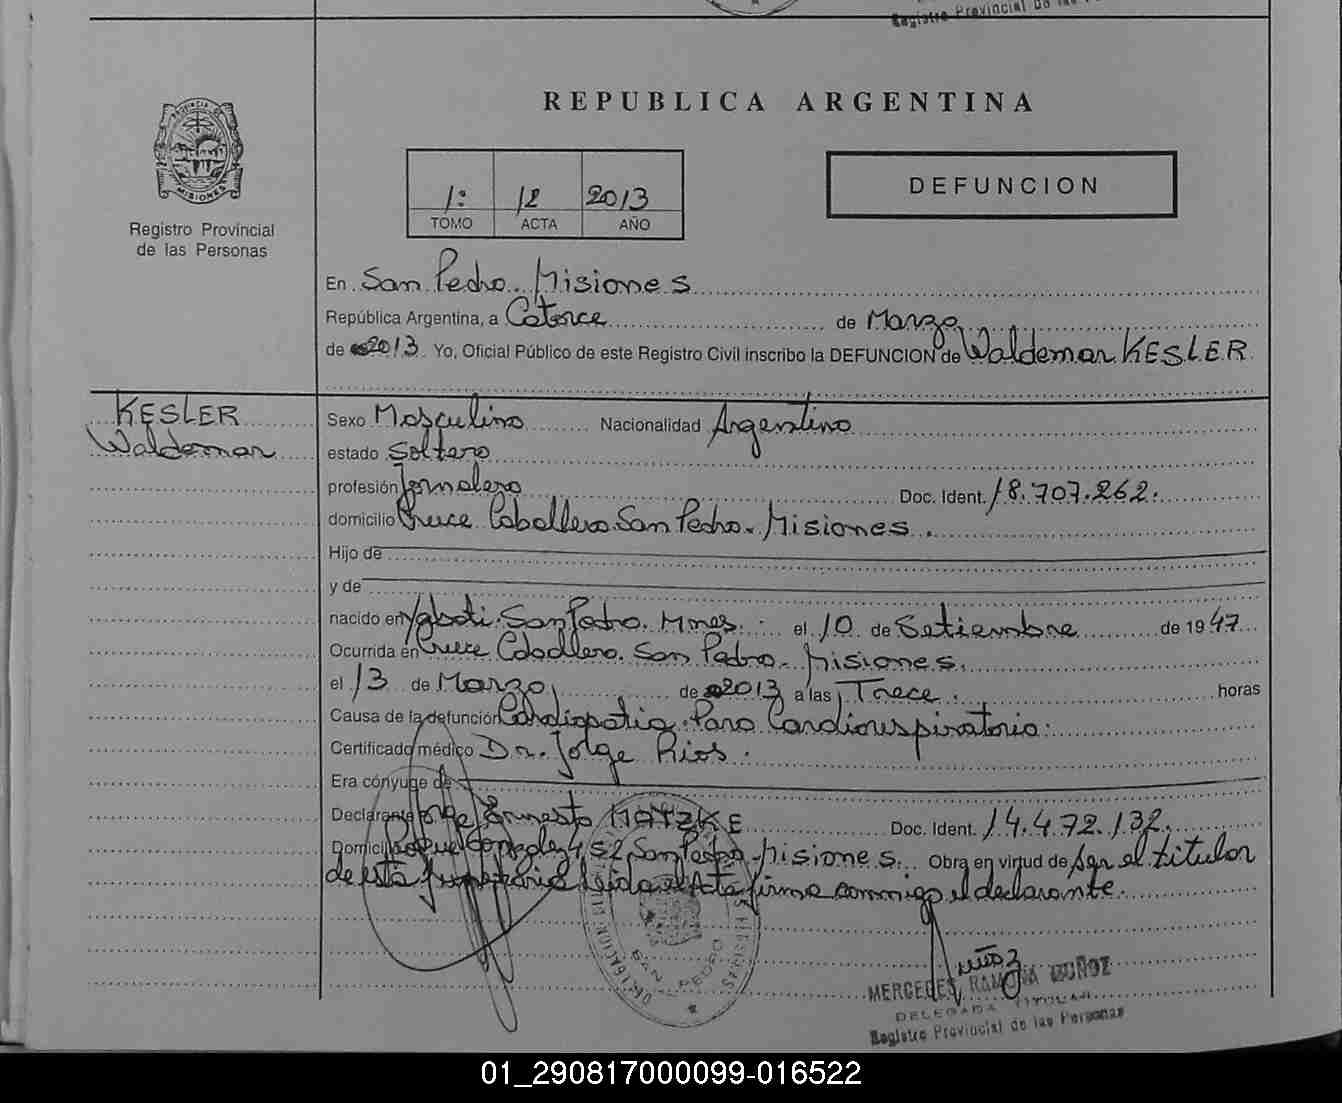 Registro Provincial de las P
REPUBLICA ARGENTINA
PROVINCIA DE
MISIONES
Registro Provincial
de las Personas
1: 12 2013
TOMO ACTA AÑO
DEFUNCION
En San Pedro. Misiones
República Argentina, a Catorce de Marzo
de 2013. Yo, Oficial Público de este Registro Civil inscribo la DEFUNCION de Waldemar KESLER
KESLER
Waldemar
Sexo Masculino Nacionalidad Argentino
estado Soltero
profesión Jornalero Doc. Ident. 18.707.262.
domicilio Cruce Caballero. San Pedro. Misiones.
Hijo de
y de
nacido en Yaboti. San Pedro. Mnes. el 10 de Setiembre de 1947
Ocurrida en Cruce Caballero. San Pedro. Misiones.
el 13 de Marzo de 2013 a las Trece. horas
Causa de la defunción Cardiopatia. Paro Cardiorespiratorio.
Certificado médico Dr. Jorge Rios.
Era cónyuge de
Declarante Jorge Ernesto MATZKE Doc. Ident. 14.472.132.
Domicilio Roque Gonzalez 452 San Pedro. Misiones. Obra en virtud de ser el titular
de esta funeraria leida el Acta firma conmigo el declarante.
DELEGACION
SAN PEDRO
Muñoz
MERCEDES RAMONA MUÑOZ
DELEGADA TITULAR
Registro Provincial de las Personas
01_290817000099-016522